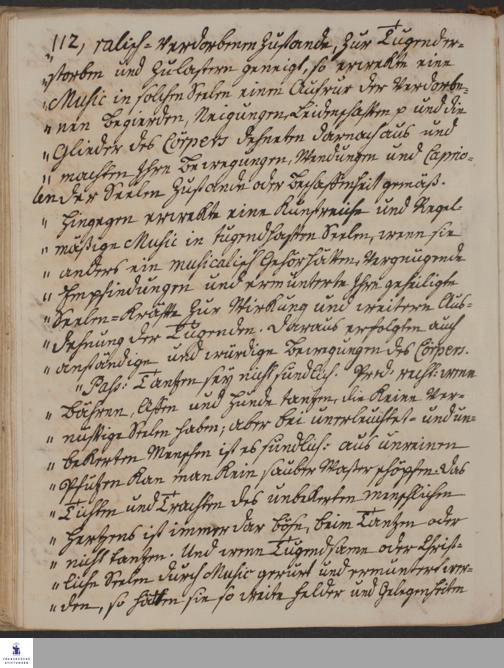 112, ralisch-verdorbenem Zustande, zur Tugend er-
„ storben und zu lastern geneigt, so erwekte eine
„ Music in solchen Seelen einen Aufrur der verdorbe-
„ nen Begierden, Neigungen, Leidenschaften p und die
„ Glieder des Cörpers dehneten darnach aus und
„ machten Ihre Bewegungen, Wendungen und Caprio-
len der Seelen Zustande oder Beschaffenheit gemäß.
„ Hingegen erwekte eine Kunstreiche und Regel
„ mäßige Music in tugendhaften Seelen, wenn sie
„ anders ein musicalisch Gehör hätten, vergnügende
„ Empfindungen und ermunterte Ihre geheiligte
„ Seelen-Kräfte zur Wirkung und weitern Aus-
„ dehnung der Tugenden. Daraus erfolgten auch
„ anständige und würdige Bewegungen des Cörpers.
„ Past: Tantzen sey nicht sündlich. Pred: nicht: wenn
„ Bähren, Affen und Hunde tantzen, die keine ver-
„ nünftige Seelen haben; aber bei unerleuchtet- und un-
„ bekerten Menschen ist es sündlich: aus unreinen
„ Pfützen kan man kein sauber Wasser schöpfen. das
„ Tichten und Trachten des unbekerten menschlichen
„ Hertzens ist immerdar böse, beim Tantzen oder
„ nicht tantzen. Und wenn Tugendsame oder Christ-
„ liche Seelen durch Music gerürt und ermuntert wer-
„ den, so hätten sie so weite Felder und Gelegenheiten
FRANCKESCHE
STIFTUNGEN